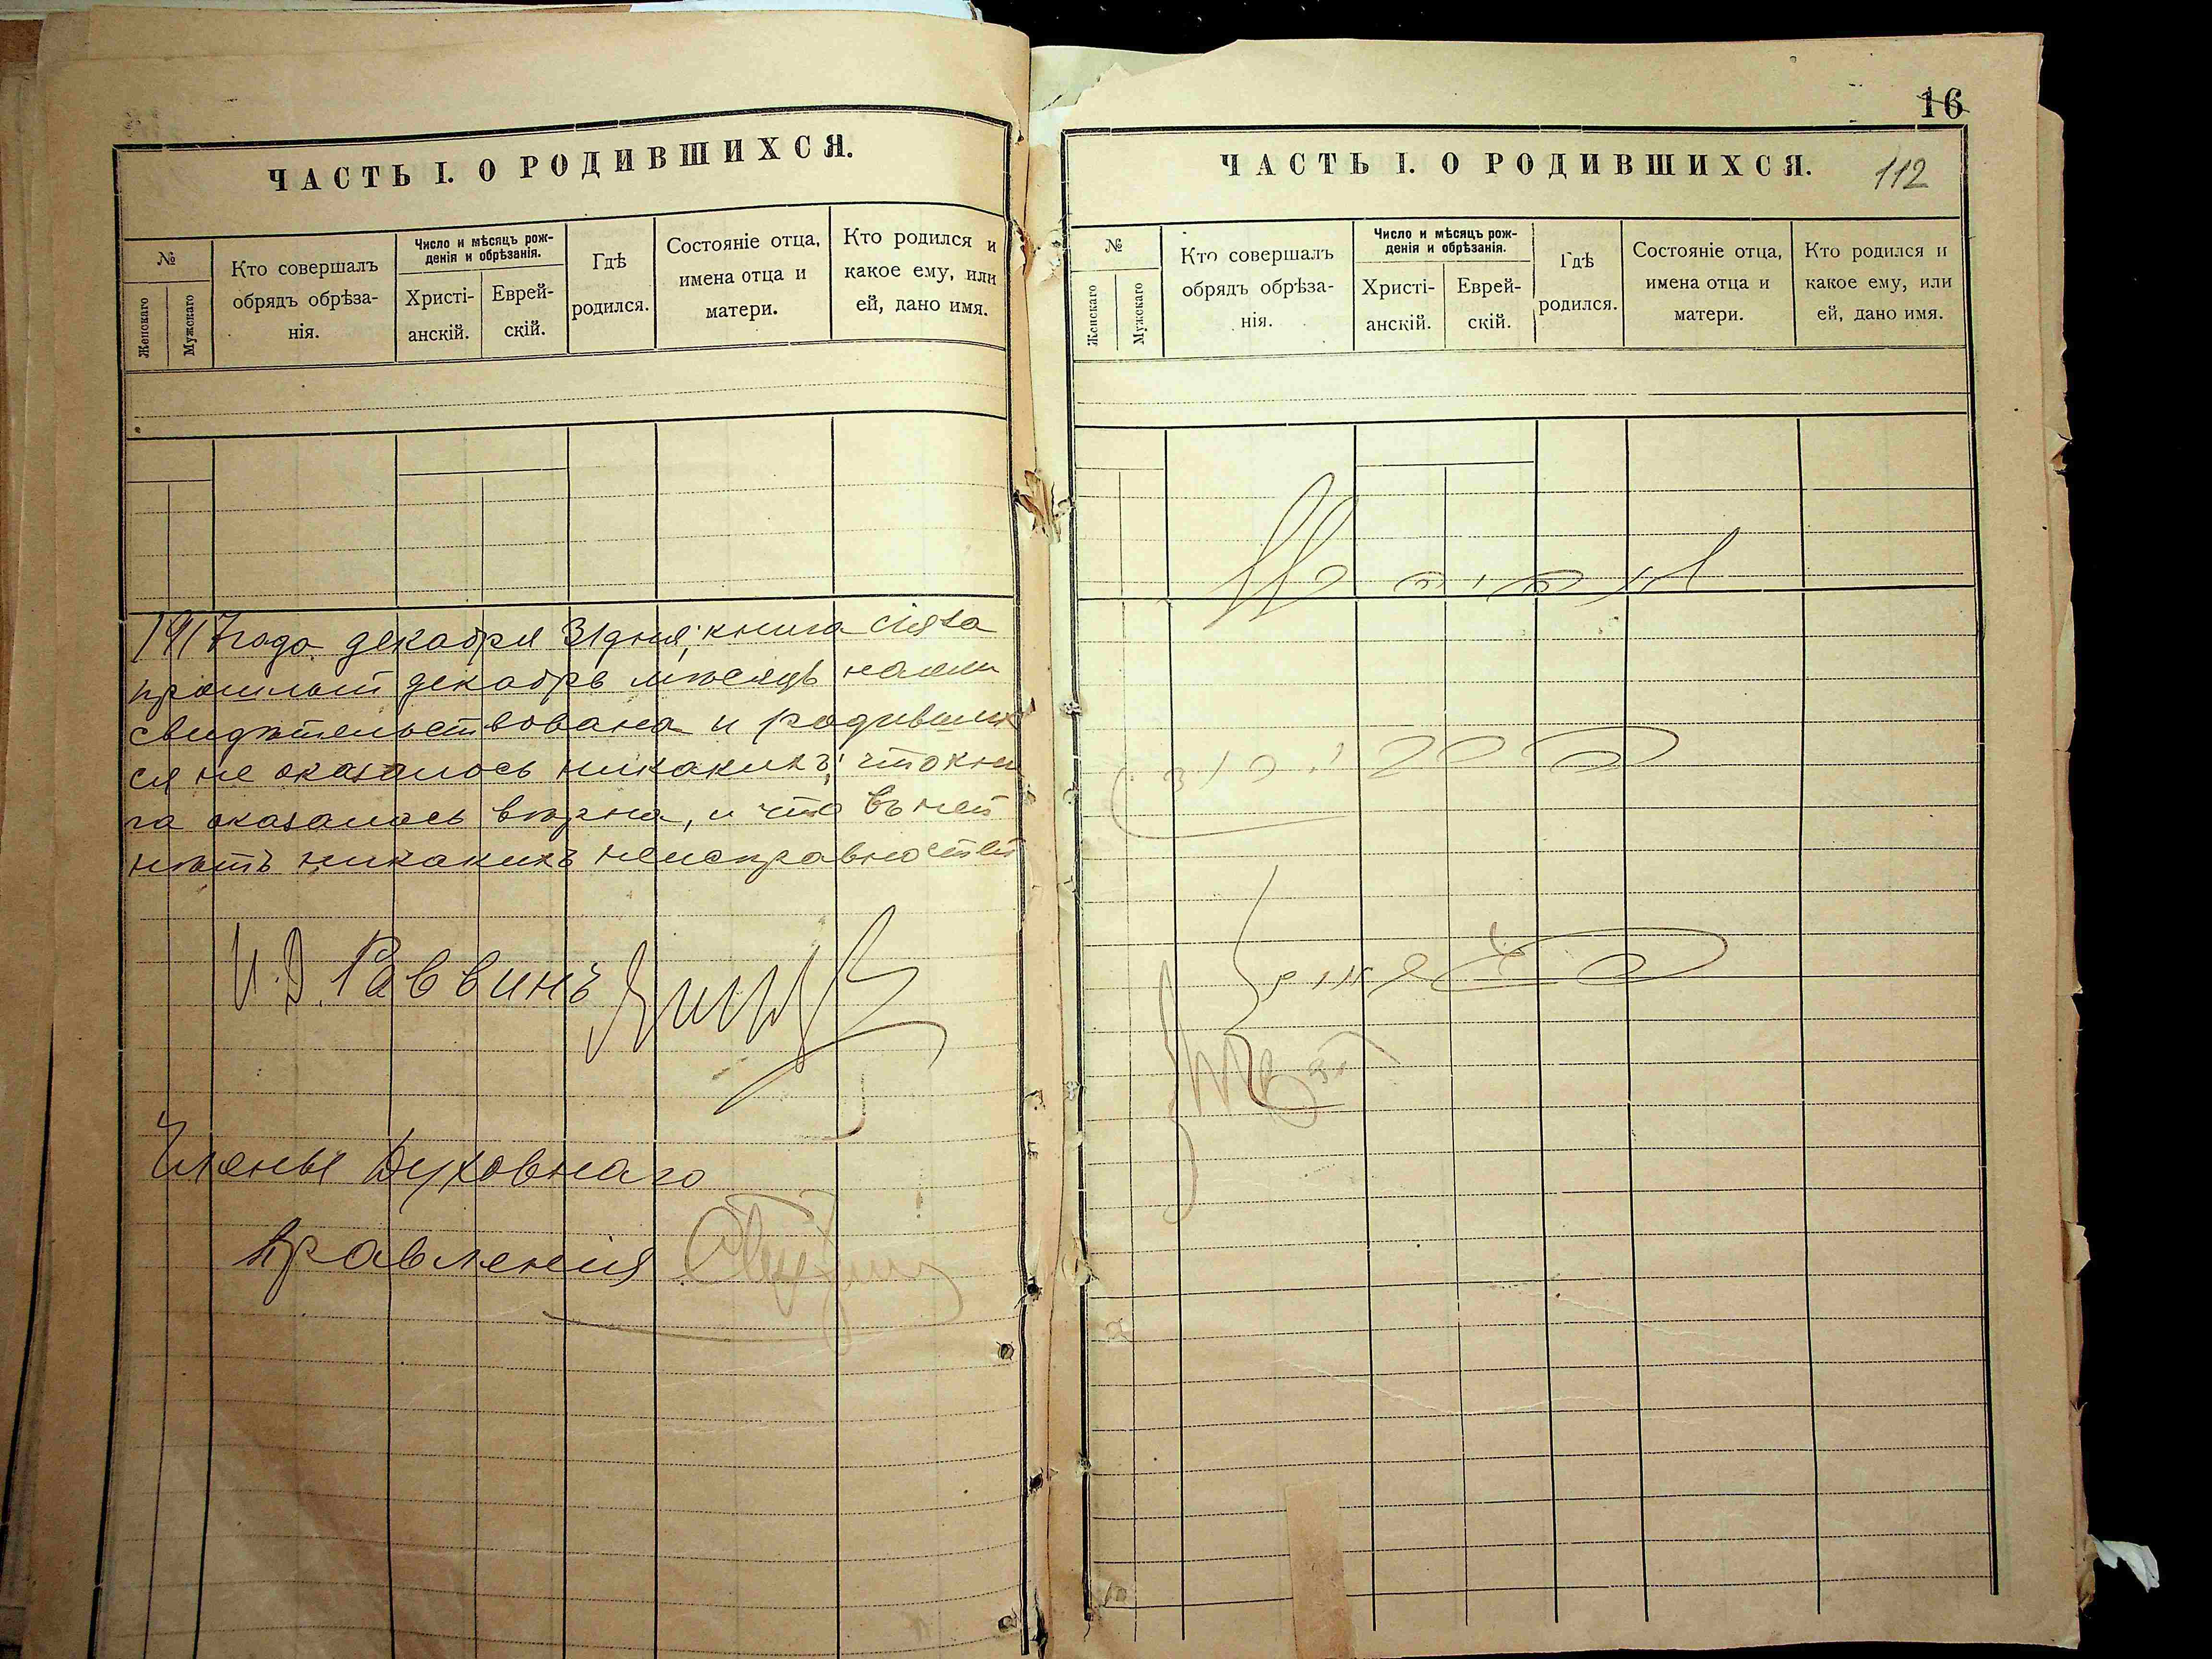 ЧАСТЬ I. О РОДИВШИХСЯ.
№
Женскаго
Мужскаго
Кто совершалъ
обрядъ обрѣза-
нія.
Число и мѣсяцъ рож-
денія и обрѣзанія.
Христі-
анскій.
Еврей-
скій.
Гдѣ
родился.
Состояніе отца,
имена отца и
матери.
Кто родился и
какое ему, или
ей, дано имя.
1917 года декабря 31 дня, книга сія за
прошлый декабрь мѣсяцъ нами
свидѣтельствована и родивших
ся не оказалось никакихъ, что кни
га оказалась вѣрна, и что въ ней
нѣтъ никакихъ неисправностей
И. Д. Раввинъ
Члены Духовнаго
Правленія
16
ЧАСТЬ I. О РОДИВШИХСЯ.
112
№
Женскаго
Мужскаго
Кто совершалъ
обрядъ обрѣза-
нія.
Число и мѣсяцъ рож-
денія и обрѣзанія.
Христі-
анскій.
Еврей-
скій.
Гдѣ
родился.
Состояніе отца,
имена отца и
матери.
Кто родился и
какое ему, или
ей, дано имя.